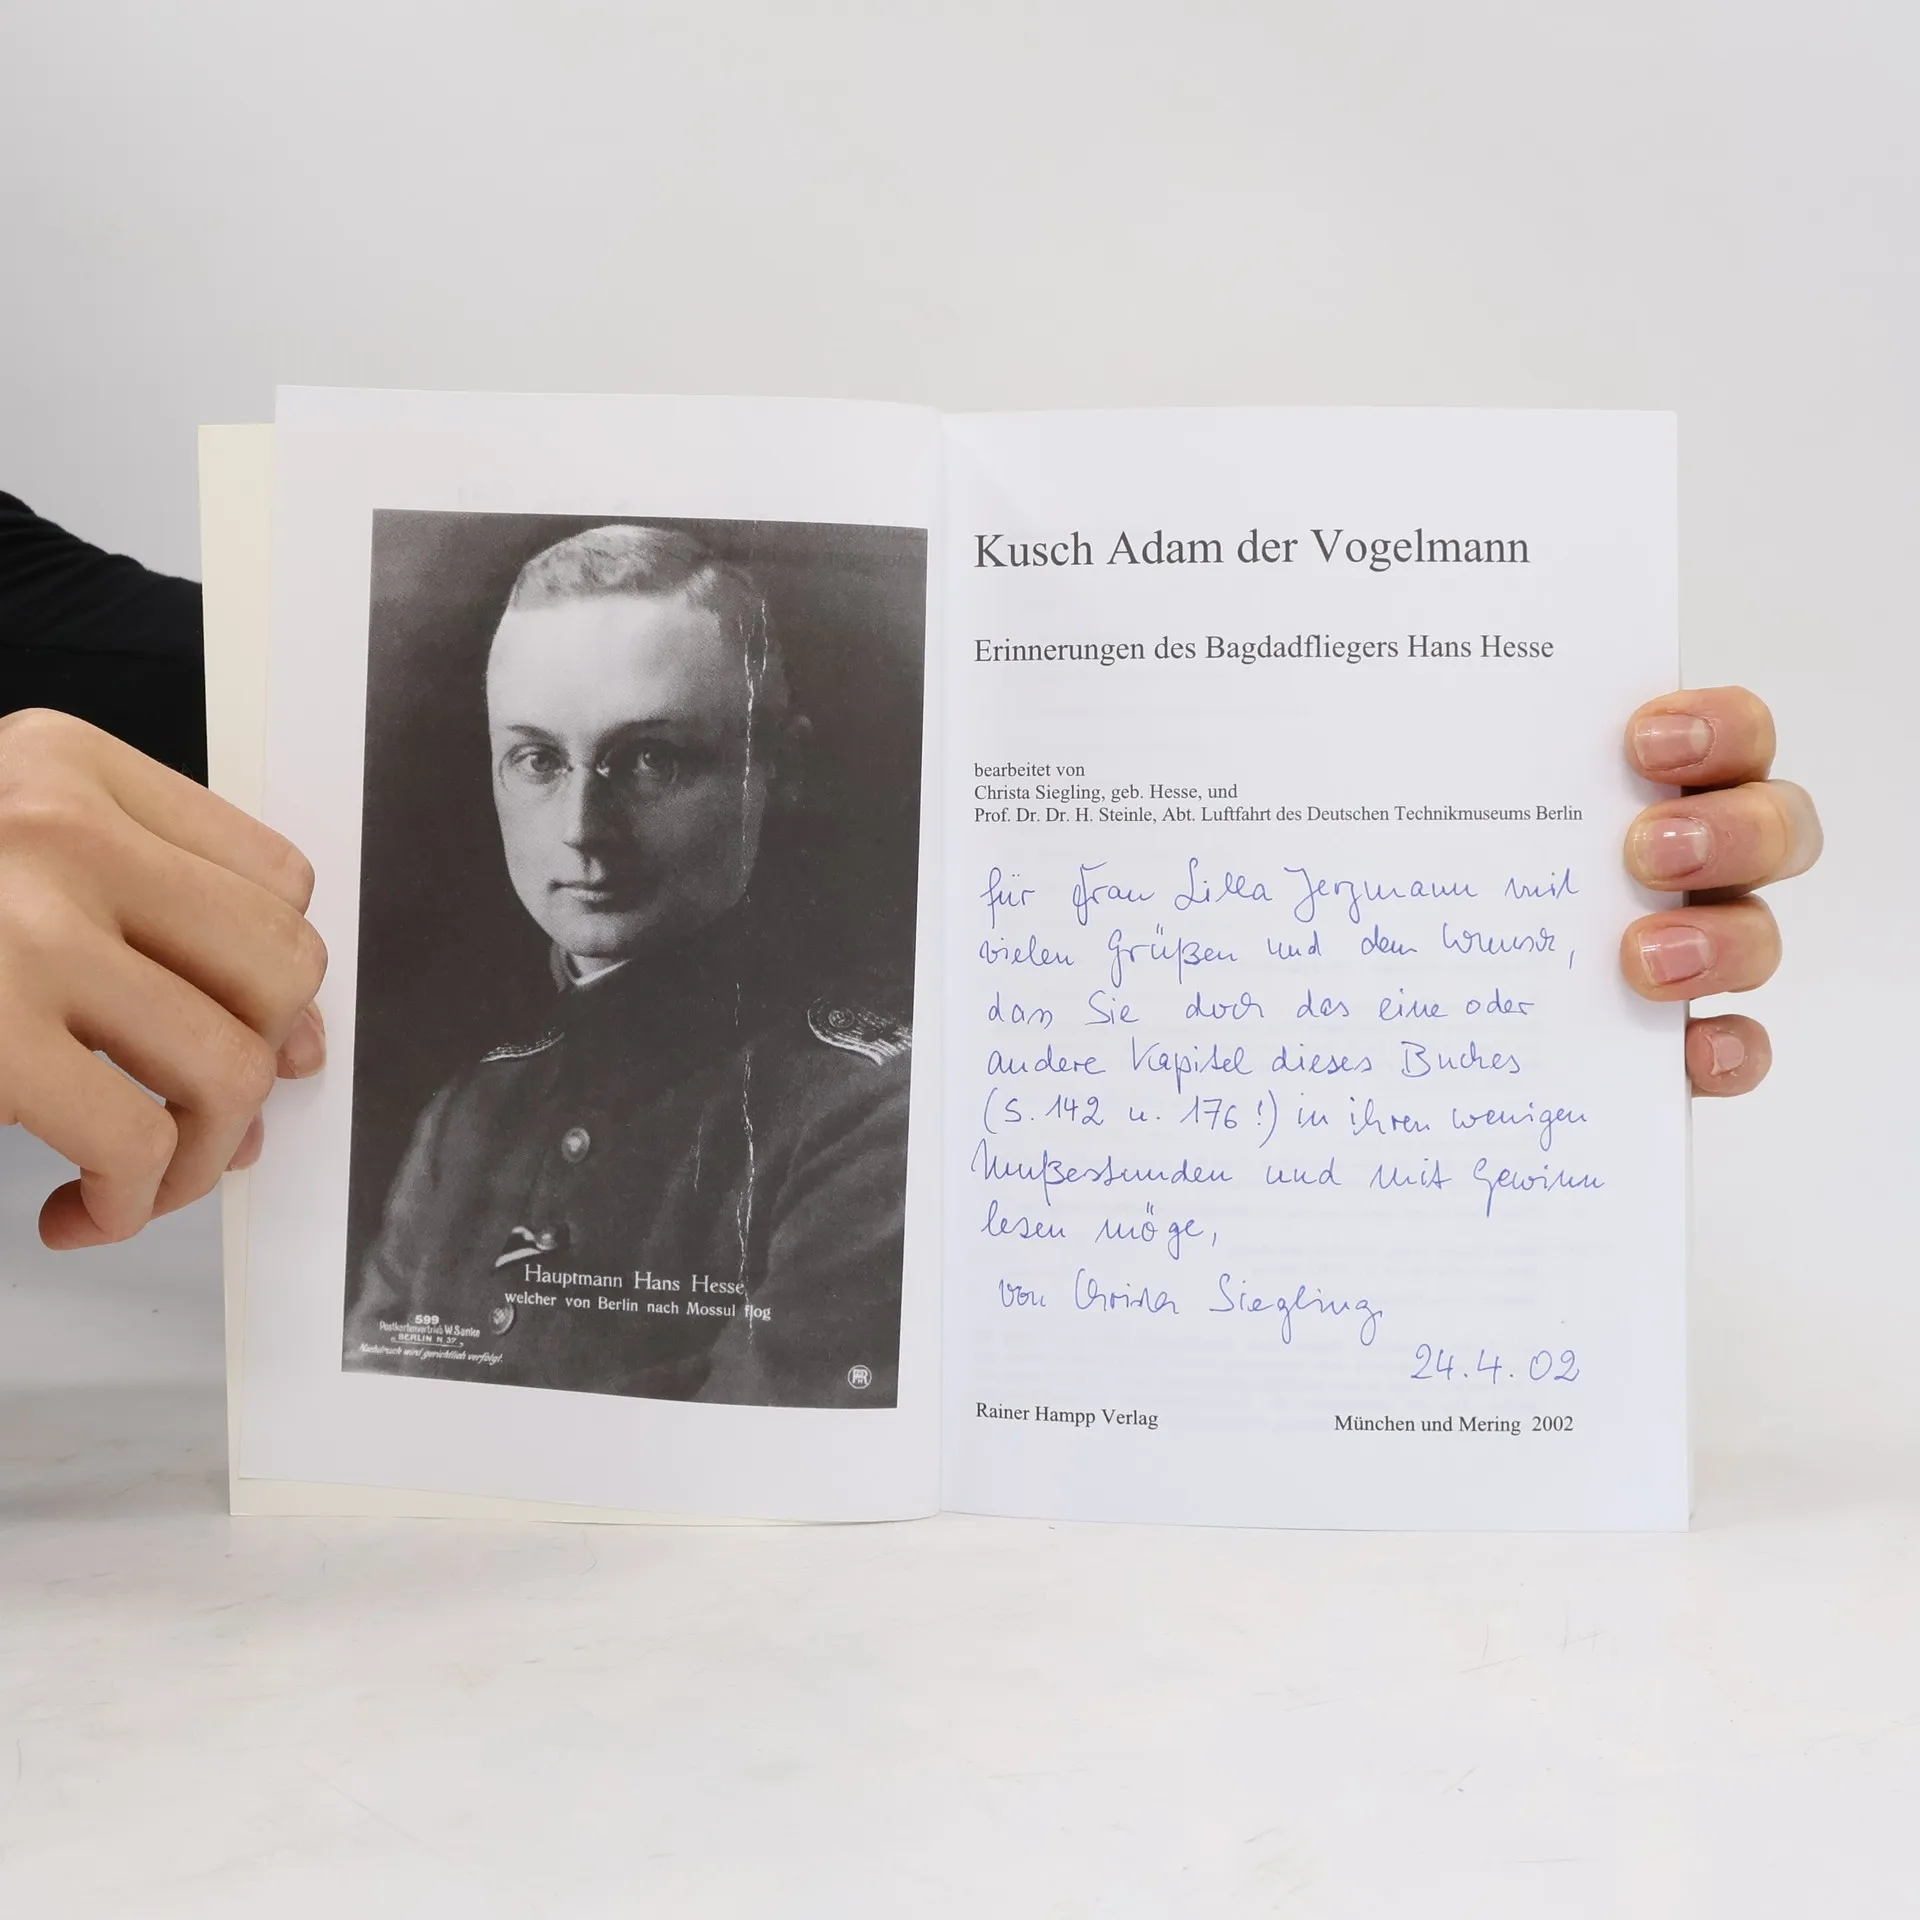 Hauptmann Hans Hesse
welcher von Berlin nach Mossul flog
599
Postkartenvertrieb W. Sanke
BERLIN N. 37
Nachdruck wird gerichtlich verfolgt.
Kusch Adam der Vogelmann
Erinnerungen des Bagdadfliegers Hans Hesse
bearbeitet von
Christa Siegling, geb. Hesse, und
Prof. Dr. Dr. H. Steinle, Abt. Luftfahrt des Deutschen Technikmuseums Berlin
für Frau Lilla Jerzmann mit
vielen Grüßen und dem Wunsch,
dass Sie doch das eine oder
andere Kapitel dieses Buches
(S. 142 u. 176!) in ihren wenigen
Mußestunden und mit Gewinn
lesen möge,
von Christa Siegling
24.4.02
Rainer Hampp Verlag
München und Mering 2002